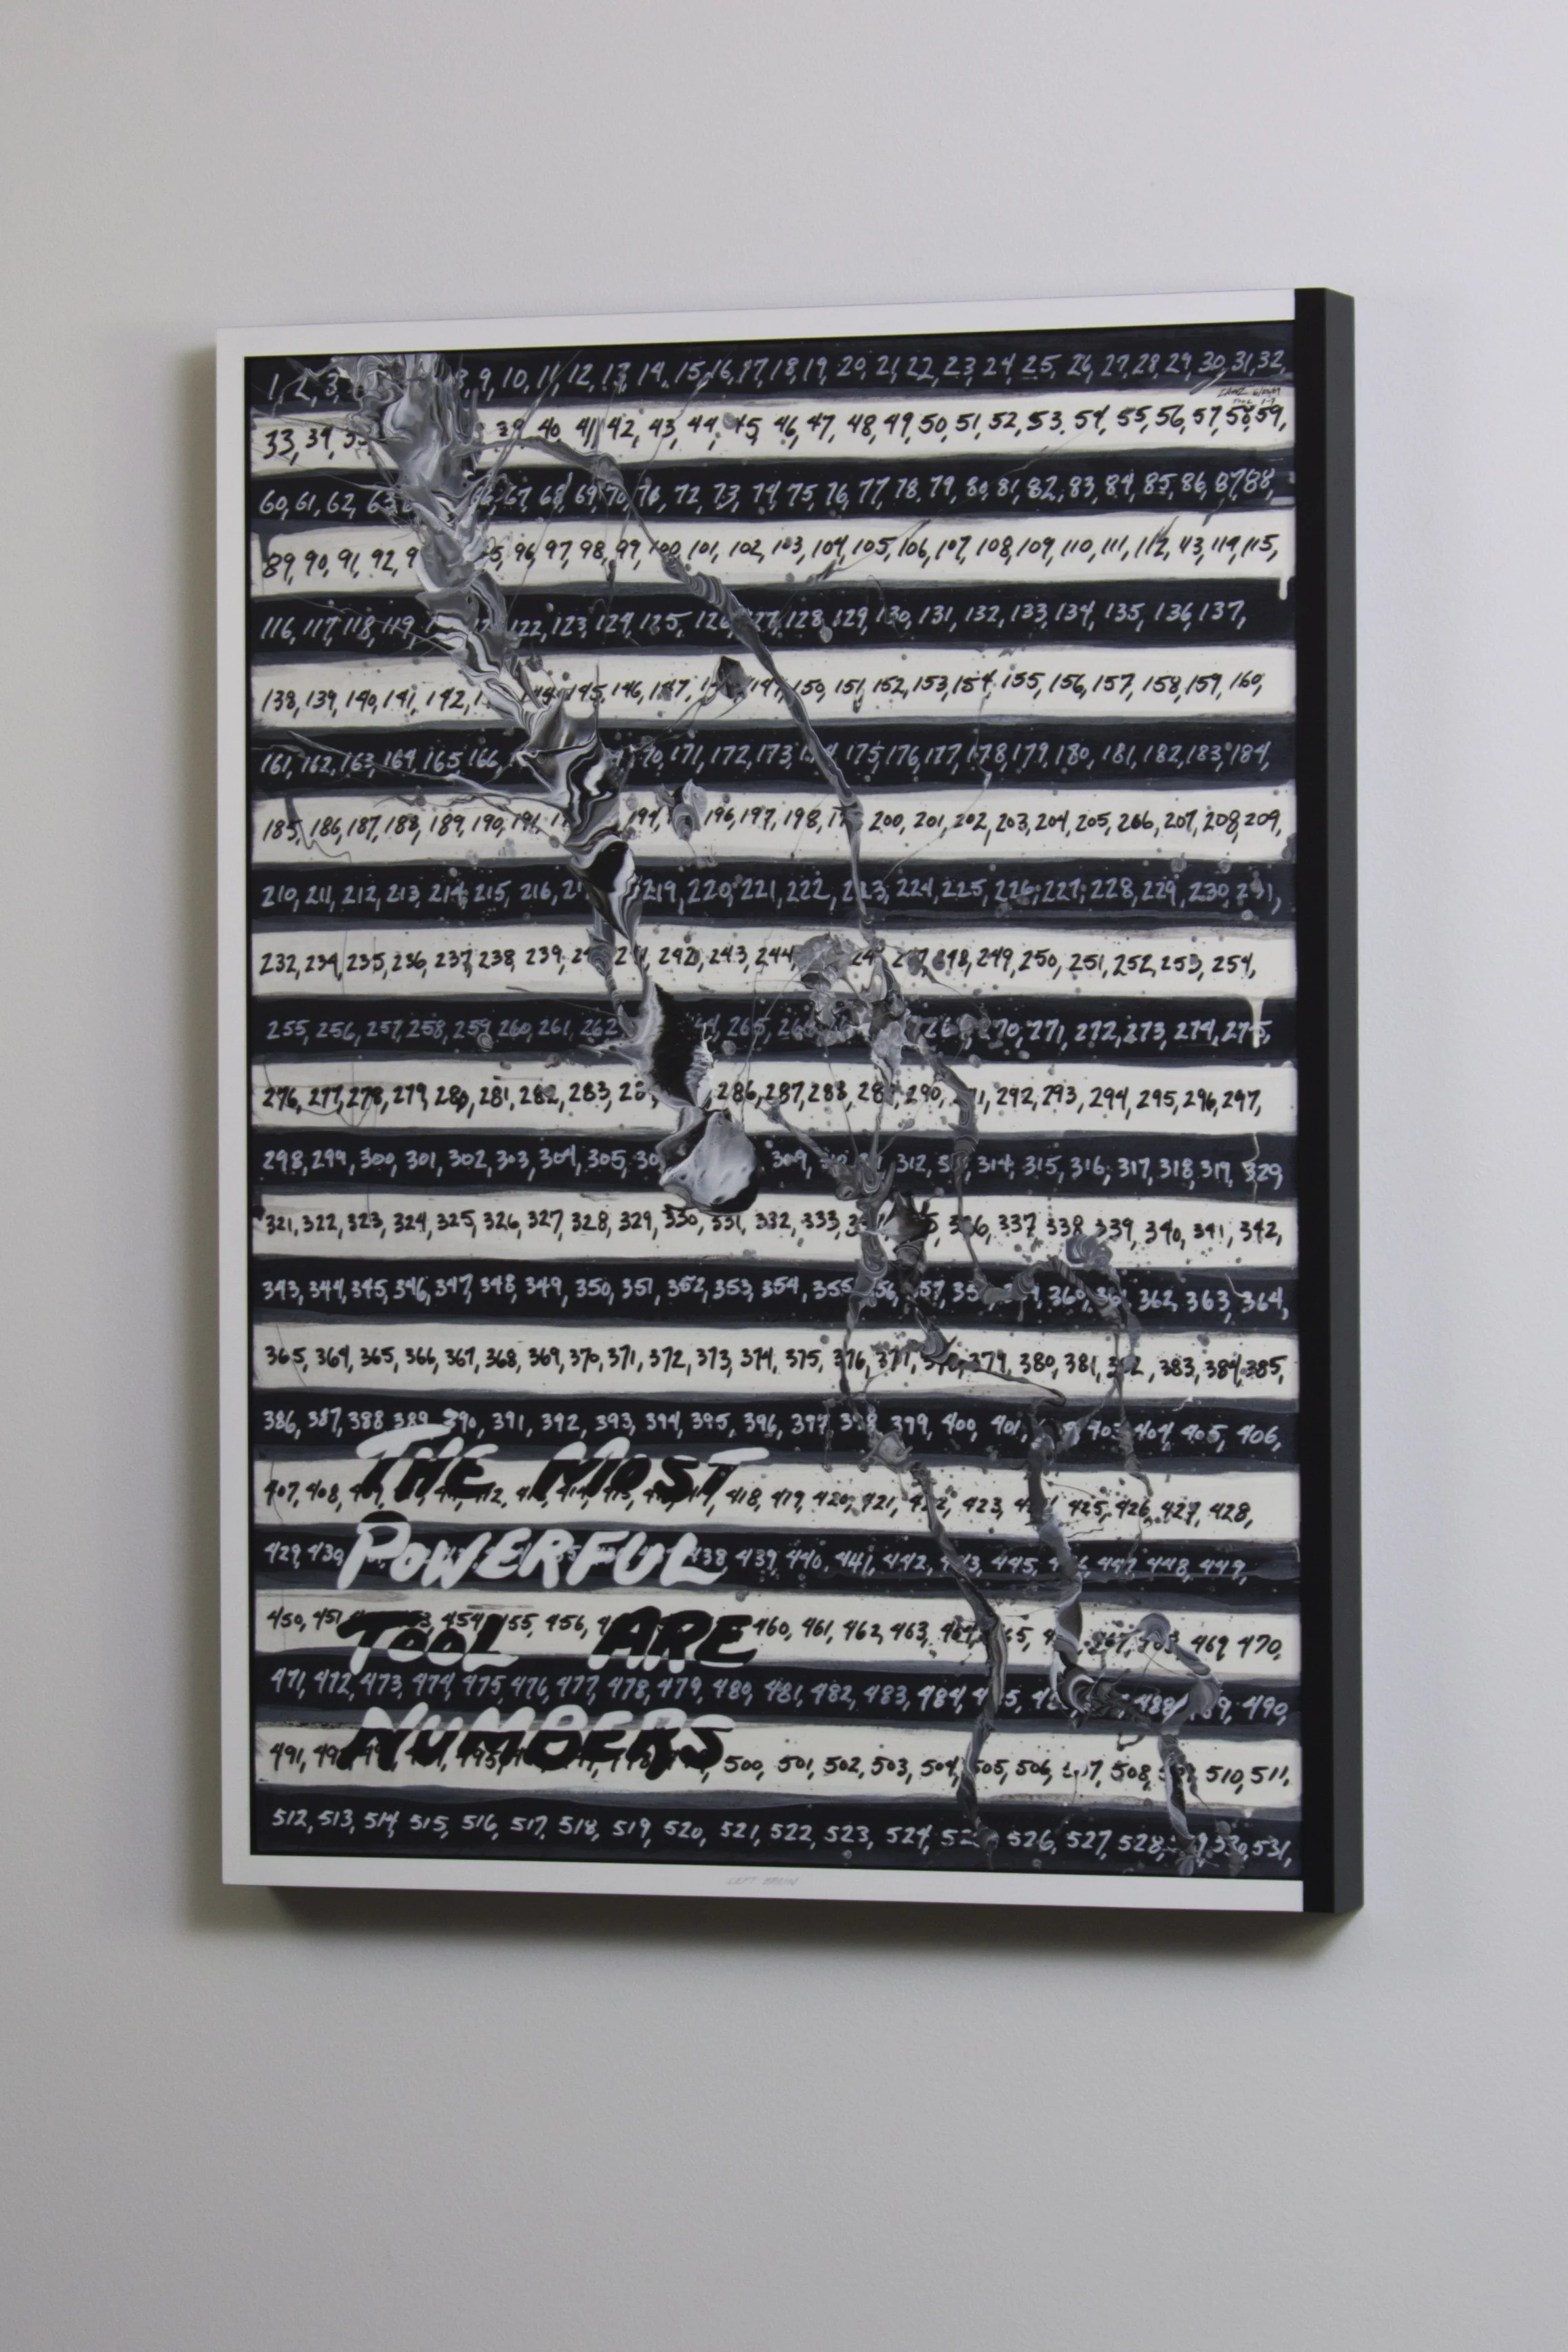 1, 2, 3 9, 10, 11, 12, 13, 14, 15, 16, 17, 18, 19, 20, 21, 22, 23, 24, 25, 26, 27, 28, 29, 30, 31, 32,
33, 34, 39, 40, 41, 42, 43, 44, 45, 46, 47, 48, 49, 50, 51, 52, 53, 54, 55, 56, 57, 58, 59,
60, 61, 62, 63 67, 68, 69, 70, 71, 72, 73, 74, 75, 76, 77, 78, 79, 80, 81, 82, 83, 84, 85, 86, 87, 88,
89, 90, 91, 92, 96, 97, 98, 99, 100, 101, 102, 103, 104, 105, 106, 107, 108, 109, 110, 111, 112, 113, 114, 115,
116, 117, 118, 119, 122, 123, 124, 125, 126, 127, 128, 129, 130, 131, 132, 133, 134, 135, 136, 137,
138, 139, 140, 141, 142, 144, 145, 146, 147, 149, 150, 151, 152, 153, 154, 155, 156, 157, 158, 159, 160,
161, 162, 163, 164, 165, 166 171, 172, 173, 175, 176, 177, 178, 179, 180, 181, 182, 183, 184,
185, 186, 187, 188, 189, 190, 191, 194, 196, 197, 198, 200, 201, 202, 203, 204, 205, 206, 207, 208, 209,
210, 211, 212, 213, 214, 215, 216, 219, 220, 221, 222, 223, 224, 225, 226, 227, 228, 229, 230, 231,
232, 234, 235, 236, 237, 238, 239, 242, 243, 244, 248, 249, 250, 251, 252, 253, 254,
255, 256, 257, 258, 259, 260, 261, 262 265, 270, 271, 272, 273, 274, 275,
276, 277, 278, 279, 280, 281, 282, 283, 286, 287, 288, 289, 290, 292, 293, 294, 295, 296, 297,
298, 299, 300, 301, 302, 303, 304, 305, 309, 312, 314, 315, 316, 317, 318, 319, 329
321, 322, 323, 324, 325, 326, 327, 328, 329, 330, 331, 332, 333, 336, 337 338 339, 340, 341, 342,
343, 344, 345, 346, 347, 348, 349, 350, 351, 352, 353, 354, 355 357, 360, 362, 363, 364,
365, 364, 365, 366, 367, 368, 369, 370, 371, 372, 373, 374, 375, 376, 377, 379, 380, 381, 382, 383, 384, 385,
386, 387, 388 389 390, 391, 392, 393, 394, 395, 396, 397 398 399, 400, 401, 403 404, 405, 406,
THE MOST
407, 408, 418, 419, 420, 421, 422, 423, 425, 426, 427, 428,
POWERFUL
429, 430, 438 439, 440, 441, 442, 443, 445, 446, 447, 448, 449,
450, 451 454 455, 456, 460, 461, 462, 463, 469 470,
TOOL ARE
471, 472, 473, 474, 475, 476, 477, 478, 479, 480, 481, 482, 483, 484, 488, 489, 490,
NUMBERS
491, 500, 501, 502, 503, 504, 505, 506, 507, 508, 510, 511,
512, 513, 514, 515, 516, 517, 518, 519, 520, 521, 522, 523, 524, 526, 527, 528, 530, 531,
LEFT BRAIN